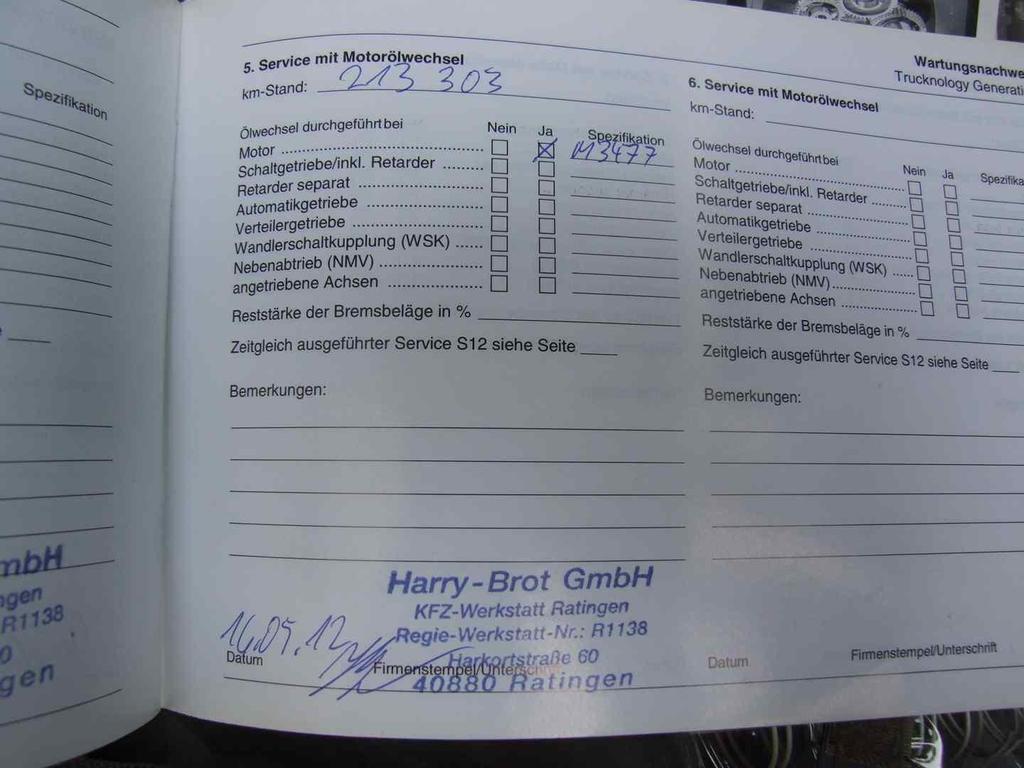 Spezifikation
mbH
gen
R1138
0
gen
5. Service mit Motorölwechsel
km-Stand: 213 303
Ölwechsel durchgeführt bei Nein Ja Spezifikation
Motor M3477
Schaltgetriebe/inkl. Retarder
Retarder separat
Automatikgetriebe
Verteilergetriebe
Wandlerschaltkupplung (WSK)
Nebenabtrieb (NMV)
angetriebene Achsen
Reststärke der Bremsbeläge in %
Zeitgleich ausgeführter Service S12 siehe Seite
Bemerkungen:
Harry-Brot GmbH
KFZ-Werkstatt Ratingen
Regie-Werkstatt-Nr.: R1138
Harkortstraße 60
40880 Ratingen
16.05.12
Datum
Firmenstempel/Unterschrift
Wartungsnachwe
Trucknology Generati
6. Service mit Motorölwechsel
km-Stand:
Ölwechsel durchgeführt bei Nein Ja Spezifika
Motor
Schaltgetriebe/inkl. Retarder
Retarder separat
Automatikgetriebe
Verteilergetriebe
Wandlerschaltkupplung (WSK)
Nebenabtrieb (NMV)
angetriebene Achsen
Reststärke der Bremsbeläge in %
Zeitgleich ausgeführter Service S12 siehe Seite
Bemerkungen:
Datum
Firmenstempel/Unterschrift